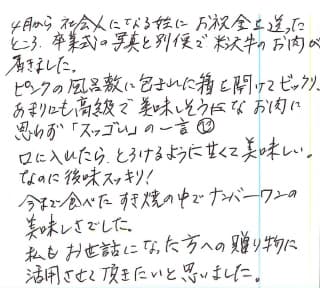 4月から社会人になる姪にお祝金を送った
ところ、卒業式の写真と別便で米沢牛のお肉が
届きました。
ピンクの風呂敷に包まれた箱を開けてビックリ、
あまりにも高級で美味しそうなお肉に
思わず「スッゴい」の一言
口に入れたら、とろけるように甘くて美味しい。
なのに後味スッキリ!
今まで食べたすき焼の中でナンバーワンの
美味しさでした。
私もお世話になった方への贈り物に
活用させて頂きたいと思いました。